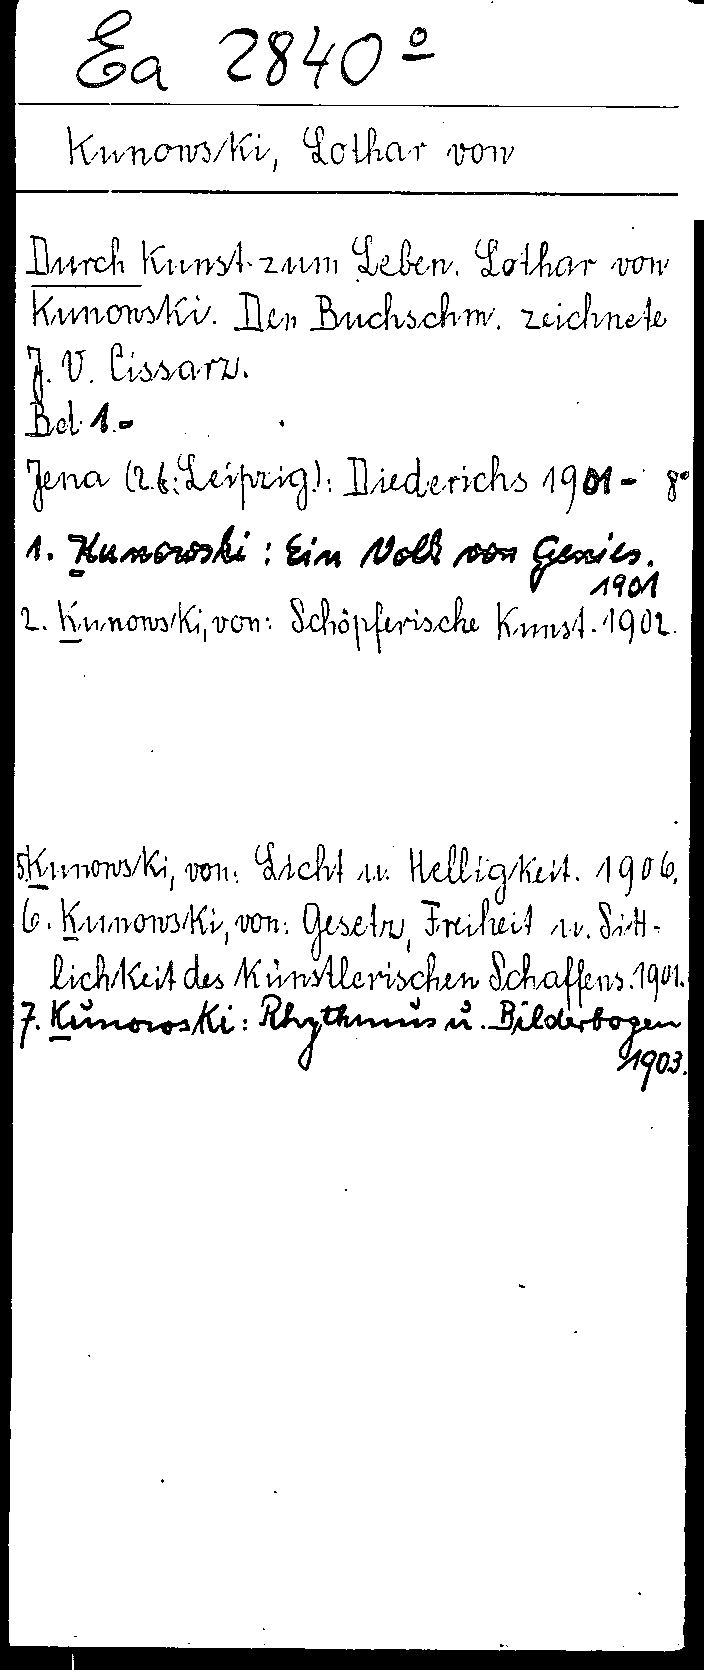 Ea 2840º
Kunowski, Lothar von
Durch Kunst zum Leben. Lothar von
Kunowski. Den Buchschm. zeichnete
J. V. Cissarz.
Bd 1.-
Jena (2.6: Leipzig): Diederichs 1901- 8°
1. Kunowski: Ein Volk von Genies.
1901
2. Kunowski, von: Schöpferische Kunst. 1902.
5. Kunowski, von: Licht u. Helligkeit. 1906.
6. Kunowski, von: Gesetz, Freiheit u. Sitt-
lichkeit des künstlerischen Schaffens. 1901.
7. Kunowski: Rhythmus u. Bilderbogen
1903.